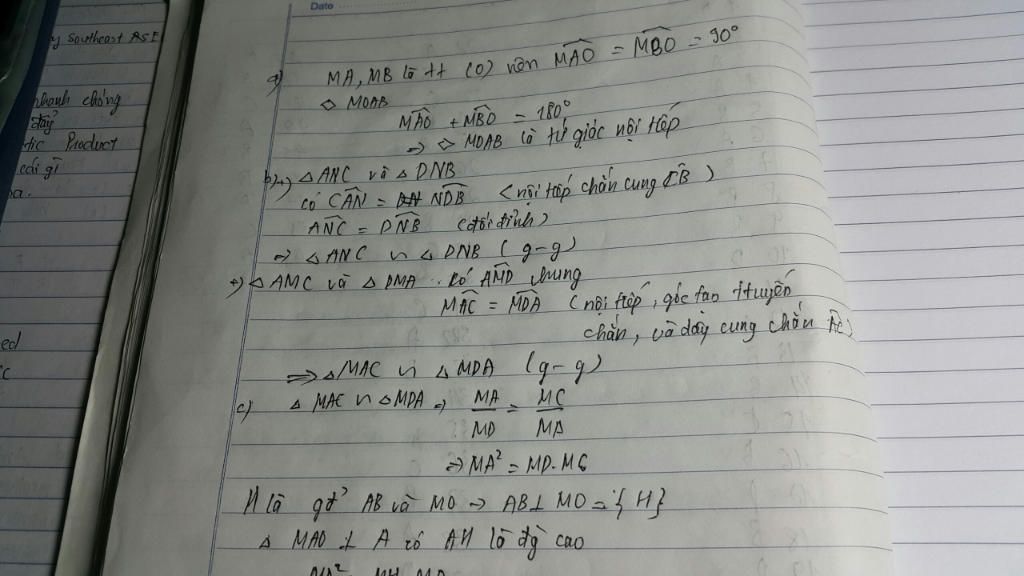 Date
y Southeast ASE
nhanh chóng
đẩy
tic Product
cái gì
a.
ed
c
a) MA, MB là tt (O) nên MAO = MBO = 90°
◇ MOAB
MAO + MBO = 180°
⇒ ◇ MOAB là tứ giác nội tiếp
b) +) △ ANC và △ DNB
có CAN = NDB (nội tiếp chắn cung CB)
ANC = DNB (đối đỉnh)
⇒ △ ANC ∽ △ DNB (g-g)
+) △ AMC và △ DMA. Có AMD chung
MAC = MDA (nội tiếp, góc tạo ttuyến
chắn, và dây cung chắn AC)
⇒ △ MAC ∽ △ MDA (g-g)
c) △ MAC ∽ △ MDA ⇒ MA/MD = MC/MA
⇒ MA² = MD.MC
H là gđ² AB và MO → AB ⊥ MO = {H}
△ MAO ⊥ A có AH là đg cao